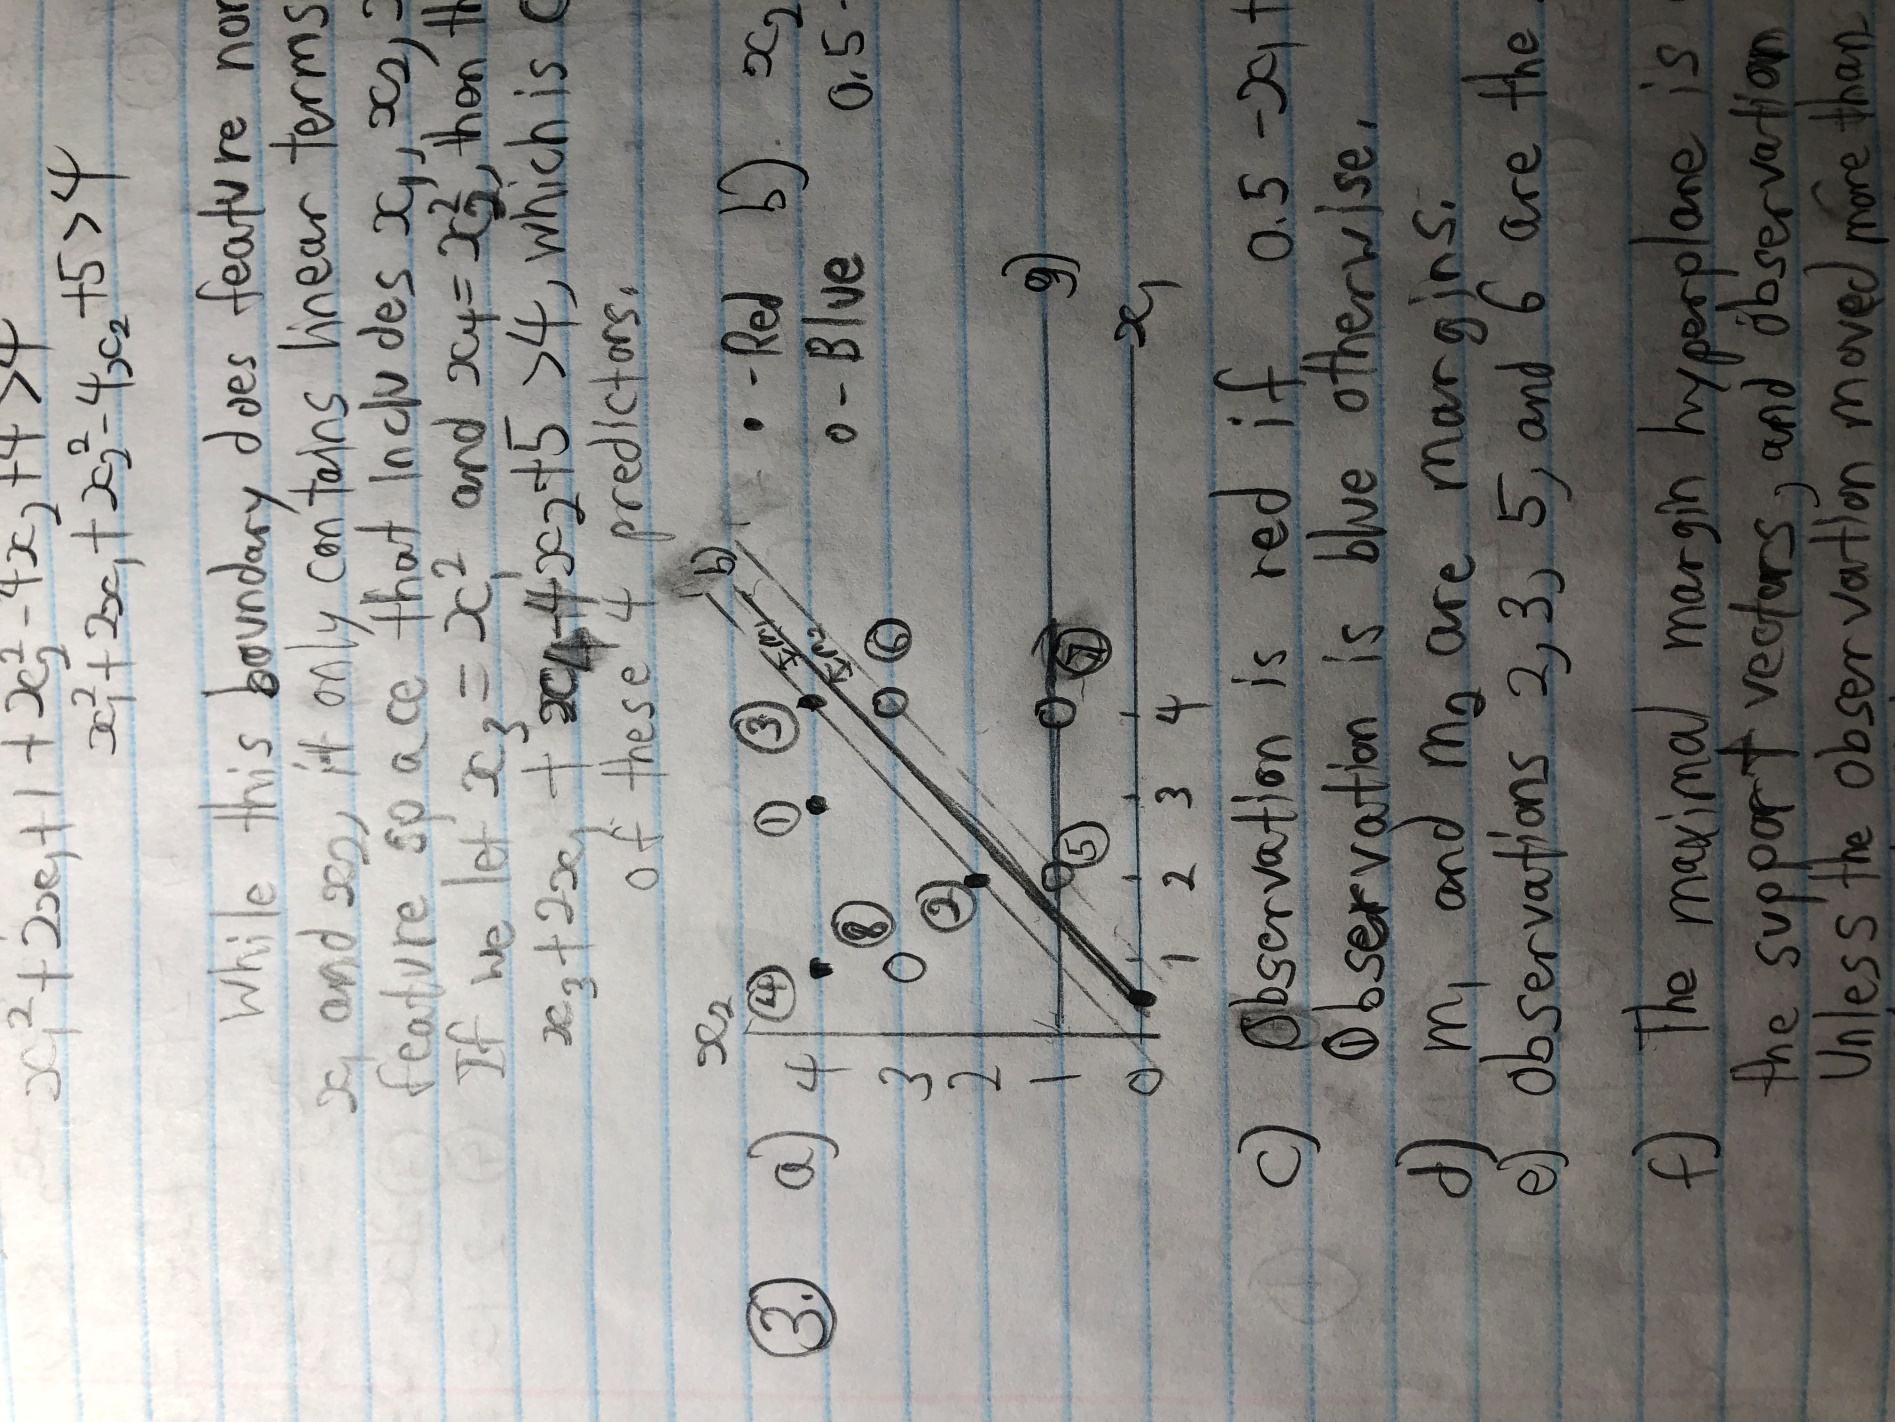 x₁² + 2x₁ + 1 + x₂² - 4x₂ + 4 > 4
x₁² + 2x₁ + x₂² - 4x₂ + 5 > 4
While this boundary does feature non
x₁ and x₂, it only contains linear terms
feature space that includes x₁, x₂,
If we let x₃ = x₁² and x₄ = x₂², then th
x₃ + 2x₁ + x₄ - 4x₂ + 5 > 4, which is
of these 4 predictors.
3. a)
x₂
4
3
2
1
0
1 2 3 4
x₁
① ② ③ ④ ⑤ ⑥ ⑦ ⑧
b)
m₁
m₂
g)
• - Red
o - Blue
b) x₂
0.5
c) Observation is red if 0.5 - x₁ +
Observation is blue otherwise.
d) m₁ and m₂ are margins.
e) Observations 2, 3, 5, and 6 are the
f) The maximal margin hyperplane is
the support vectors, and observation
Unless the observation moved more than